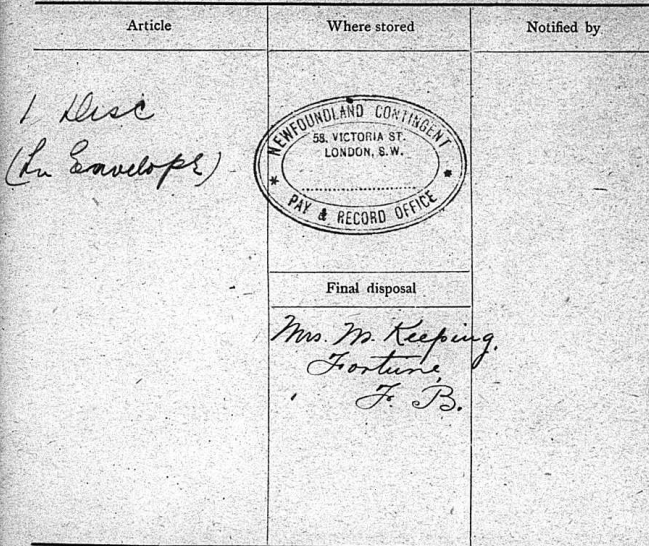 Article
Where stored
Notified by
1 Disc
(In Envelope)
NEWFOUNDLAND CONTINGENT
58, VICTORIA ST.
LONDON, S.W.
* PAY & RECORD OFFICE *
Final disposal
Mrs. M. Keeping.
Fortune,
F. B.